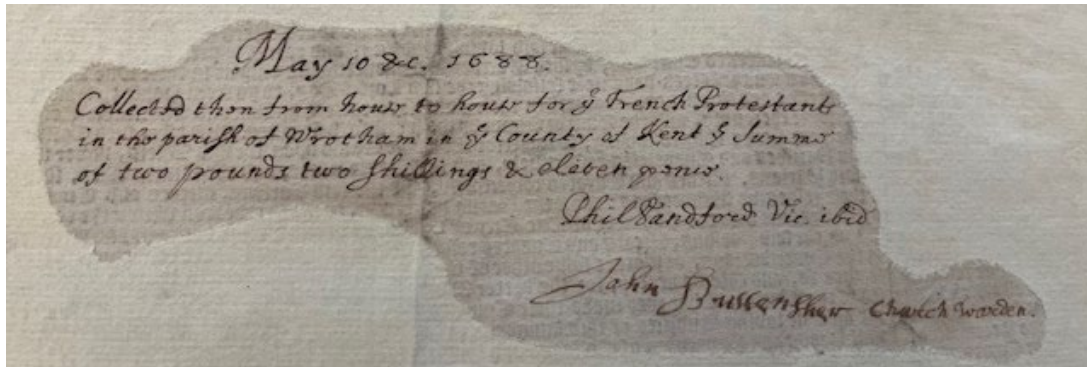 May 10 &c. 1688.
Collected then from house to house for ye French Protestants
in the parish of Wrotham in ye County of Kent ye Summe
of two pounds two shillings & eleven pence.
Phil Sandford Vic. ibid
John Church Warden.